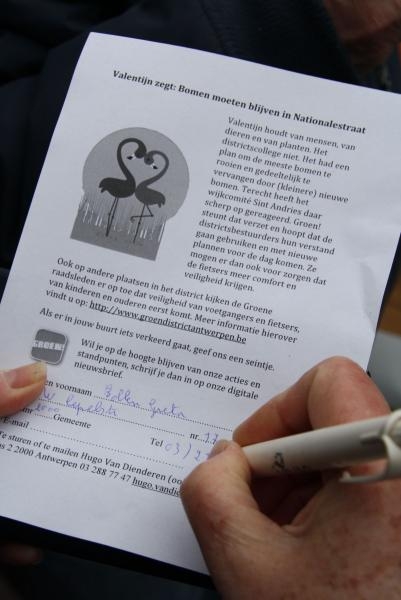 Valentijn zegt: Bomen moeten blijven in Nationalestraat
Valentijn houdt van mensen, van
dieren en van planten. Het
districtscollege niet. Het had een
plan om de meeste bomen te
rooien en gedeeltelijk te
vervangen door (kleinere) nieuwe
bomen. Terecht heeft het
wijkcomité Sint Andries daar
scherp op gereageerd. Groen!
steunt dat verzet en hoopt dat de
districtsbestuurders hun verstand
gaan gebruiken en met nieuwe
plannen voor de dag komen. Ze
mogen er dan ook voor zorgen dat
de fietsers meer comfort en
veiligheid krijgen.
Ook op andere plaatsen in het district kijken de Groene
raadsleden er op toe dat veiligheid van voetgangers en fietsers,
van kinderen en ouderen eerst komt. Meer informatie hierover
vindt u op: http://www.groendistrictantwerpen.be
Als er in jouw buurt iets verkeerd gaat, geef ons een seintje.
GROEN!
Wil je op de hoogte blijven van onze acties en
standpunten, schrijf je dan in op onze digitale
nieuwsbrief.
en voornaam
nr. 17
Gemeente
-mail Tel 03/2
Te sturen of te mailen Hugo Van Dienderen
2 2000 Antwerpen 03 288 77 47